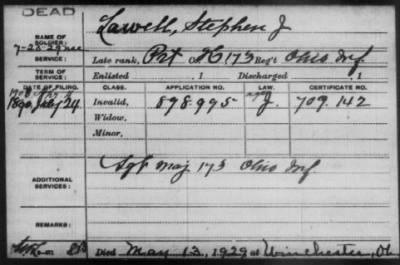 DEAD
Lowell, Stephen J
NAME OF SOLDIER:
SERVICE: Late rank, Pvt Co. 173 Reg't Ohio Inf.
TERM OF SERVICE: Enlisted , 1 Discharged , 1
DATE OF FILING. CLASS. APPLICATION NO. LAW. CERTIFICATE NO.
1890 July 24 Invalid, 898.995 J. 709.142
Widow,
Minor,
ADDITIONAL SERVICES: Sgt Maj 173 Ohio Inf
REMARKS:
Died May 13, 1929 at Winchester, Oh